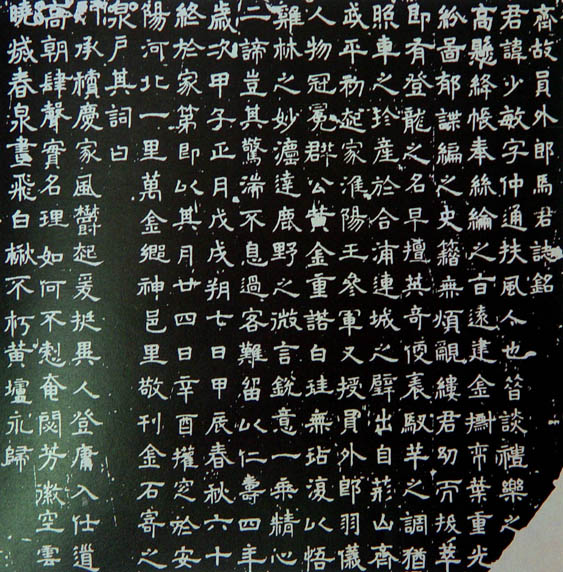 齊故員外郎馬君誌銘
君諱少敏字仲通扶風人也昔談禮樂之
高懸絳帳奉絲綸之旨遠建金帝葉重光
紛啚郁諜編之史籍無煩覼縷君㓜而拔萃
即有登龍之名早擅其奇便表馭羊之調猶
照車之珍產於合浦連城之璧出自荊山齊
武平初起家淮陽王參軍又授員外郎羽儀
人物冠冕群公黃金重諾白珪無玷復以悟
雞林之妙灋達鹿野之微言銳意一乘精心
二諦豈其驚湍不息過客難留以仁壽四年
歲次甲子正月戊戌朔七日甲辰春秋六十
終於家第即以其月廿四日辛酉權窆於安
陽河北一里萬金鄉神邑里敬刊金石寄之
泉戶其詞曰
承積慶家風鬱起爰挺異人登庸入仕遺
高朝肆聲實名理如何不憖奄閟芳徽空雲
曉城春泉晝飛白楸不朽黃壚永歸